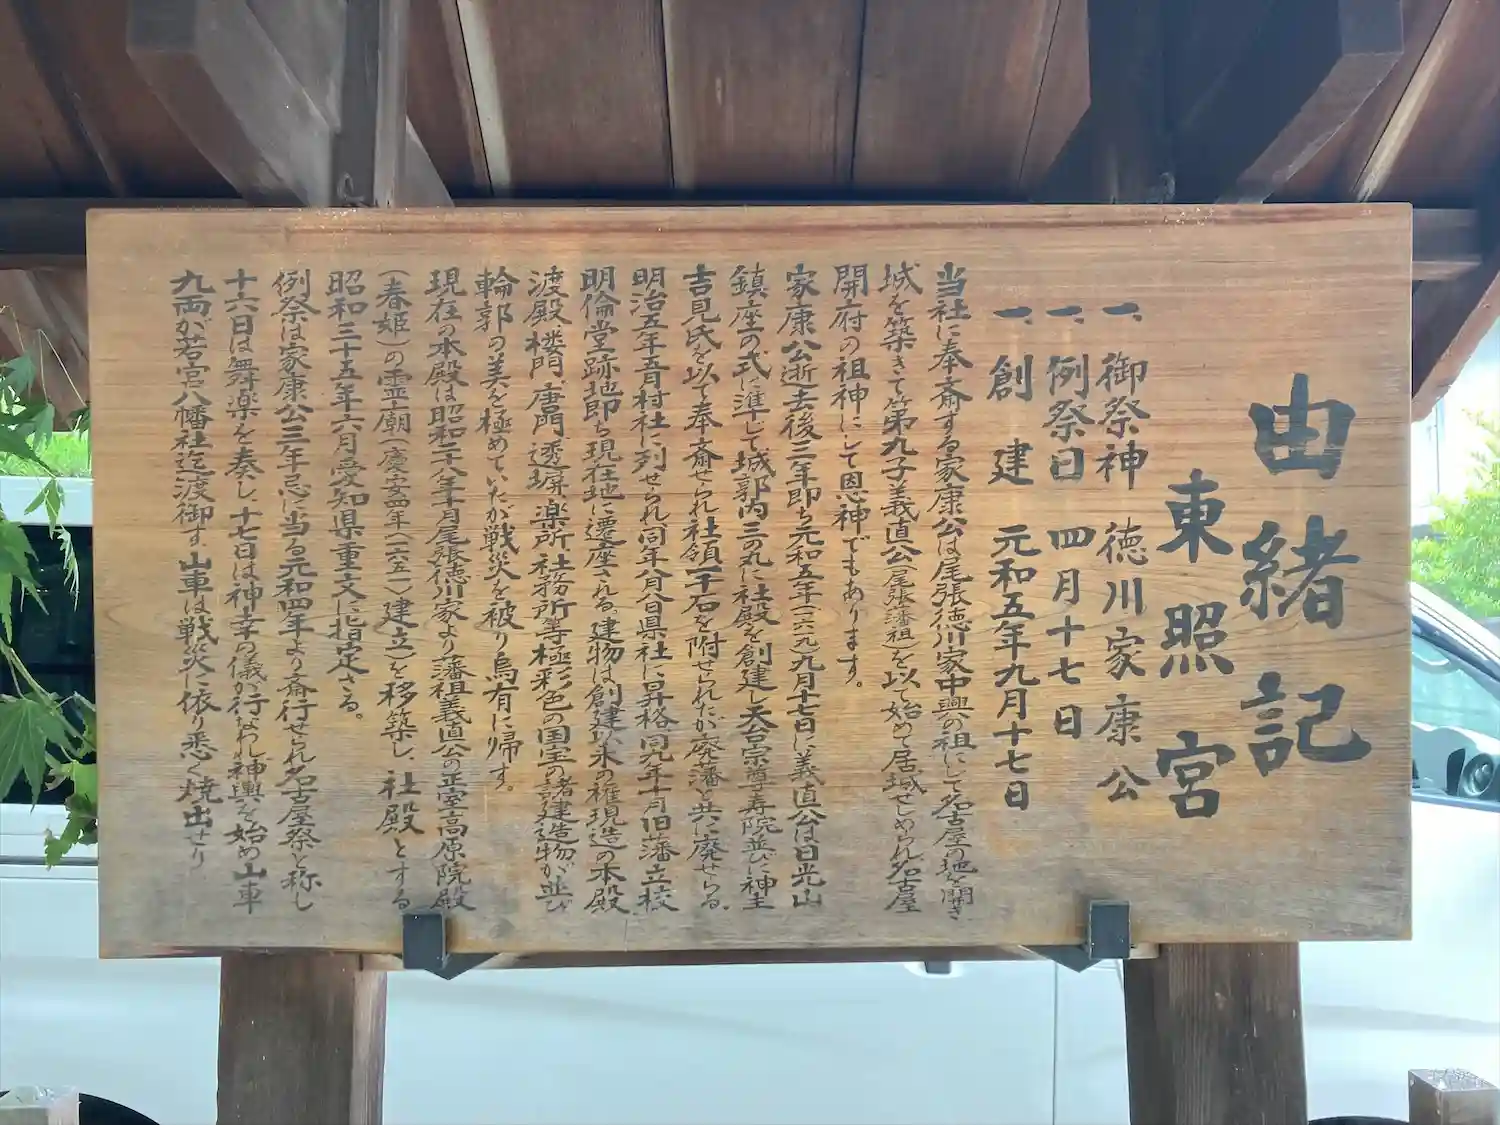 由緒記
東照宮
一、御祭神 徳川家康公
一、例祭日 四月十七日
一、創建 元和五年九月十七日
当社に奉斎する家康公は尾張徳川家中興の祖にして名古屋の地を開き
城を築きて第九子義直公(尾張藩祖)を以て始めて居城せしめられ名古屋
開府の祖神にして恩神でもあります。
家康公逝去後三年即ち元和五年(一六一九)九月十七日に義直公は日光山
鎮座の式に準じて城郭内三の丸に社殿を創建し天台宗尊寿院並びに神主
吉見氏を以て奉斎せられ社領一千石を附せられたが廃藩と共に廃せらる。
明治五年五月村社に列せられ、同年八月八日県社に昇格同九年十月旧藩立校
明倫堂跡地即ち現在地に遷座される。建物は創建以来の権現造の本殿
渡殿、楼門、唐門、透塀、楽所、社務所等極彩色の国宝の諸建造物が並び
輪郭の美を極めていたが戦災を被り烏有に帰す。
現在の本殿は昭和二十八年十月尾張徳川家より(藩祖義直公の正室高原院殿
(春姫)の霊廟(慶安四年(一六五一)建立)を移築し、社殿とする
昭和三十五年六月愛知県重文に指定さる。
例祭は家康公三年忌に当る元和四年より斎行せられ名古屋祭と称し
十六日は舞楽を奏し、十七日は神幸の儀が行なわれ神輿を始め山車
九両が若宮八幡社迄渡御す山車は戦災に依り悉く焼出せり